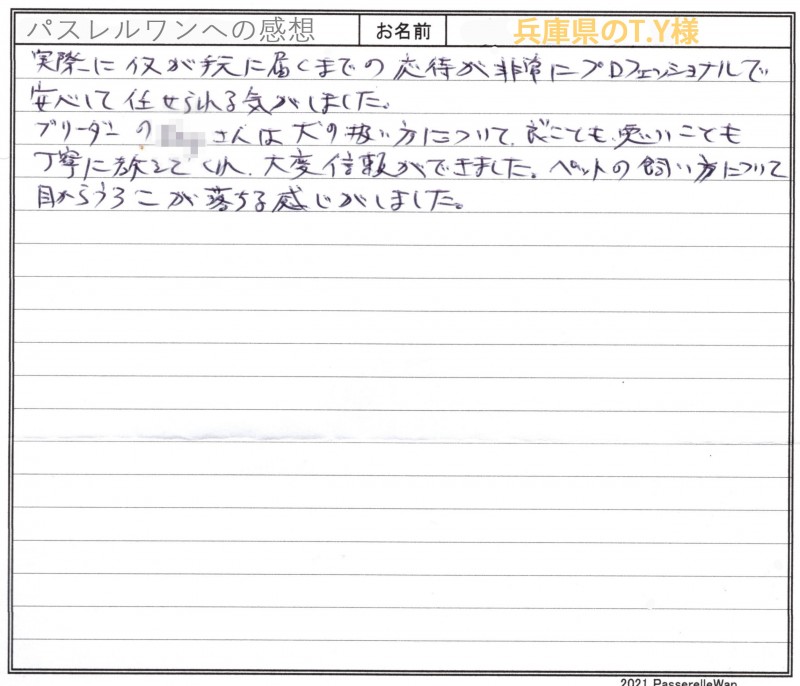 パスレルワンへの感想 お名前 兵庫県のT.Y様
実際に 仔が手元に届くまでの 応待が非常にプロフェッショナルで
安心して 任せられる気がしました。
ブリーダーの さんは 犬の扱い方について、良いことも、悪いことも
丁寧に教えてくれ、大変信頼ができました。ペットの飼い方について
目からうろこが落ちる感じがしました。
2021 PasserelleWan